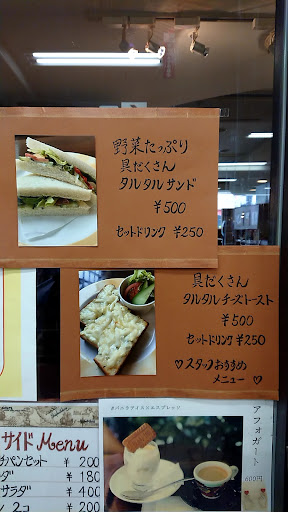 野菜たっぷり
具だくさん
タルタルサンド
¥500
セットドリンク ¥250
具だくさん
タルタルチーズトースト
¥500
セットドリンク ¥250
♡スタッフおすすめ
メニュー♡
サイドMenu
チパンセット ¥ 200
ダ ¥ 180
サラダ ¥ 400
2コ ¥ 200
バニラアイス×エスプレッソ
アフォガート
600円